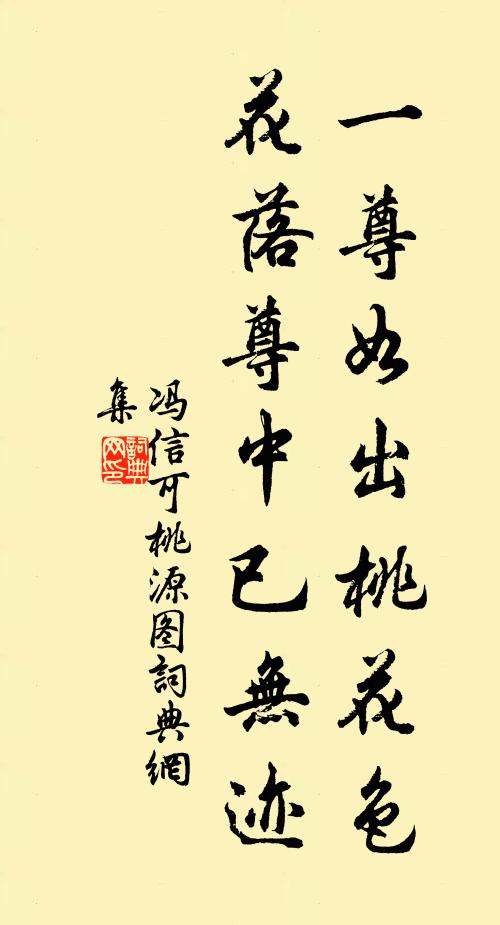 一尊如出桃花色
花落尊中已無迹
冯信可桃源图詞典網
集
詞典
网印